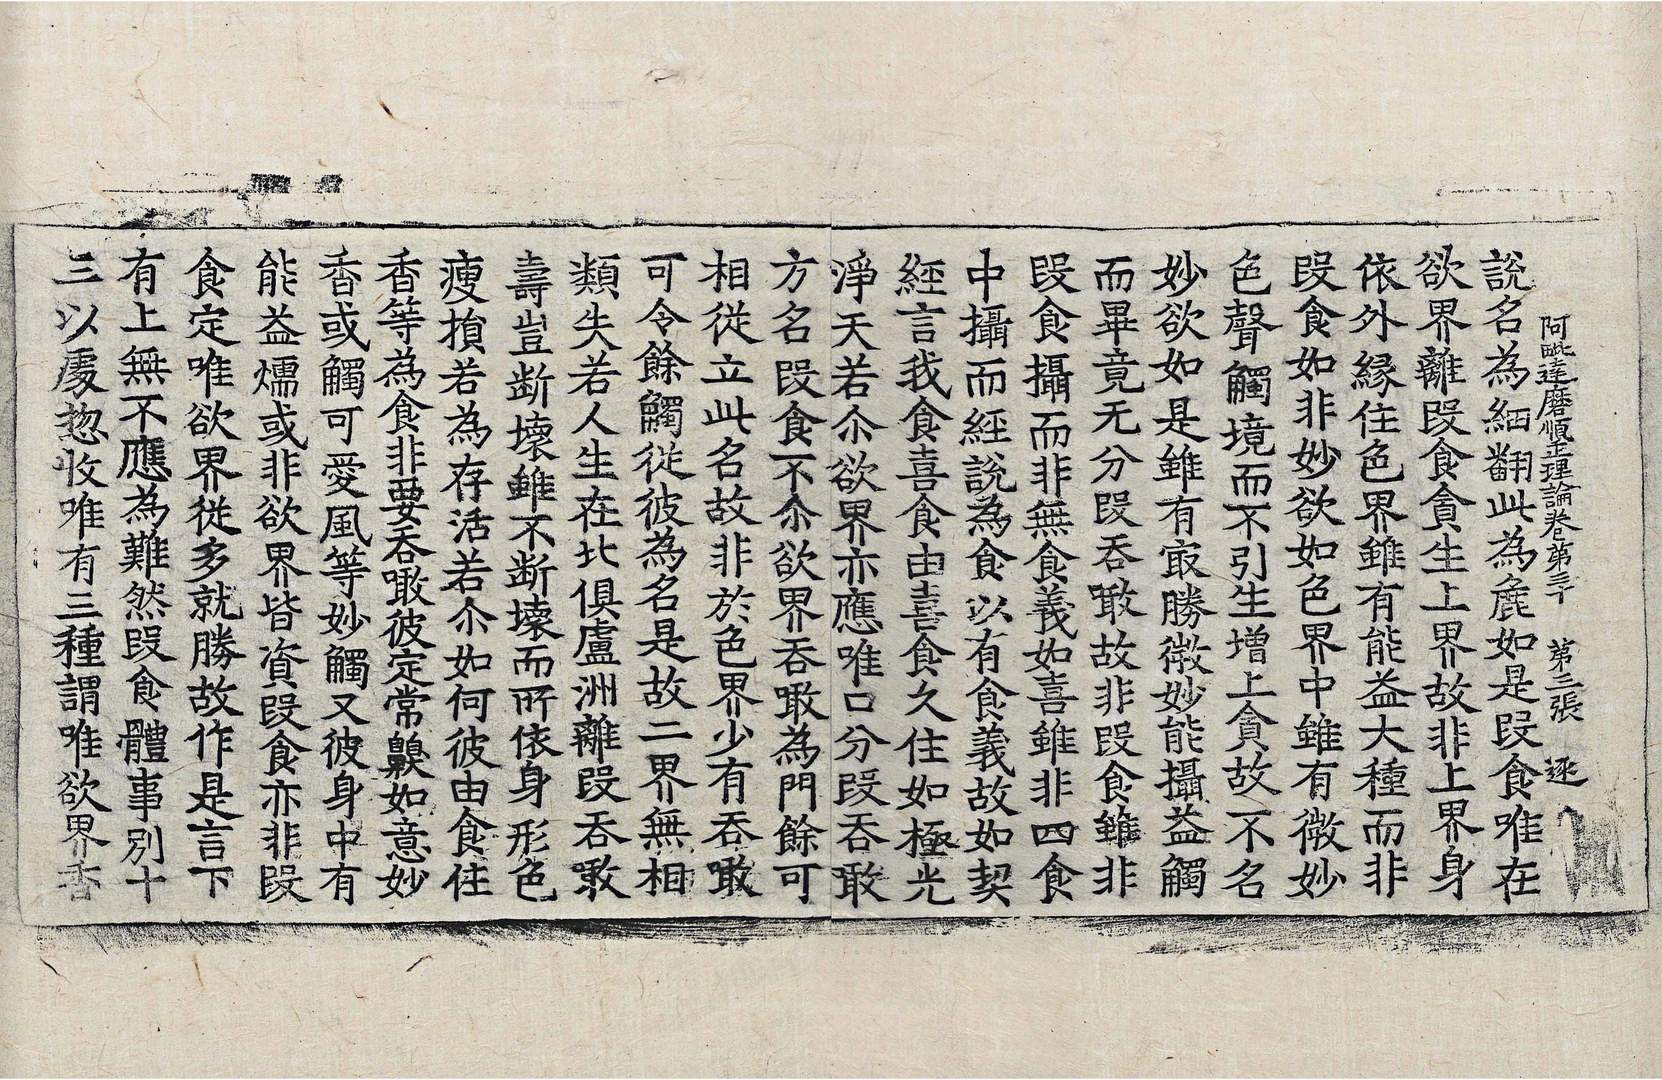 阿毗達磨順正理論卷第三十 第三張 逐
說名為細翻此為麁如是段食唯在
欲界離段食貪生上界故非上界身
依外緣住色界雖有能益大種而非
段食如非妙欲如色界中雖有微妙
色聲觸境而不引生增上貪故不名
妙欲如是雖有㝡勝微妙能攝益觸
而畢竟无分段吞噉故非段食雖非
段食攝而非無食義如喜雖非四食
中攝而經說為食以有食義故如契
經言我食喜食由喜食久住如極光
淨天若尒欲界亦應唯口分段吞噉
方名段食不尒欲界吞噉為門餘可
相從立此名故非於色界少有吞噉
可令餘觸從彼為名是故二界無相
類失若人生在北俱盧洲離段吞噉
壽豈斷壞雖不斷壞而所依身形色
瘦損若為存活若尒如何彼由食住
香等為食非要吞噉彼定常齅如意妙
香或觸可愛風等妙觸又彼身中有
能益煗或非欲界皆資段食亦非段
食定唯欲界從多就勝故作是言下
有上無不應為難然段食體事別十
三以處惣收唯有三種謂唯欲界香